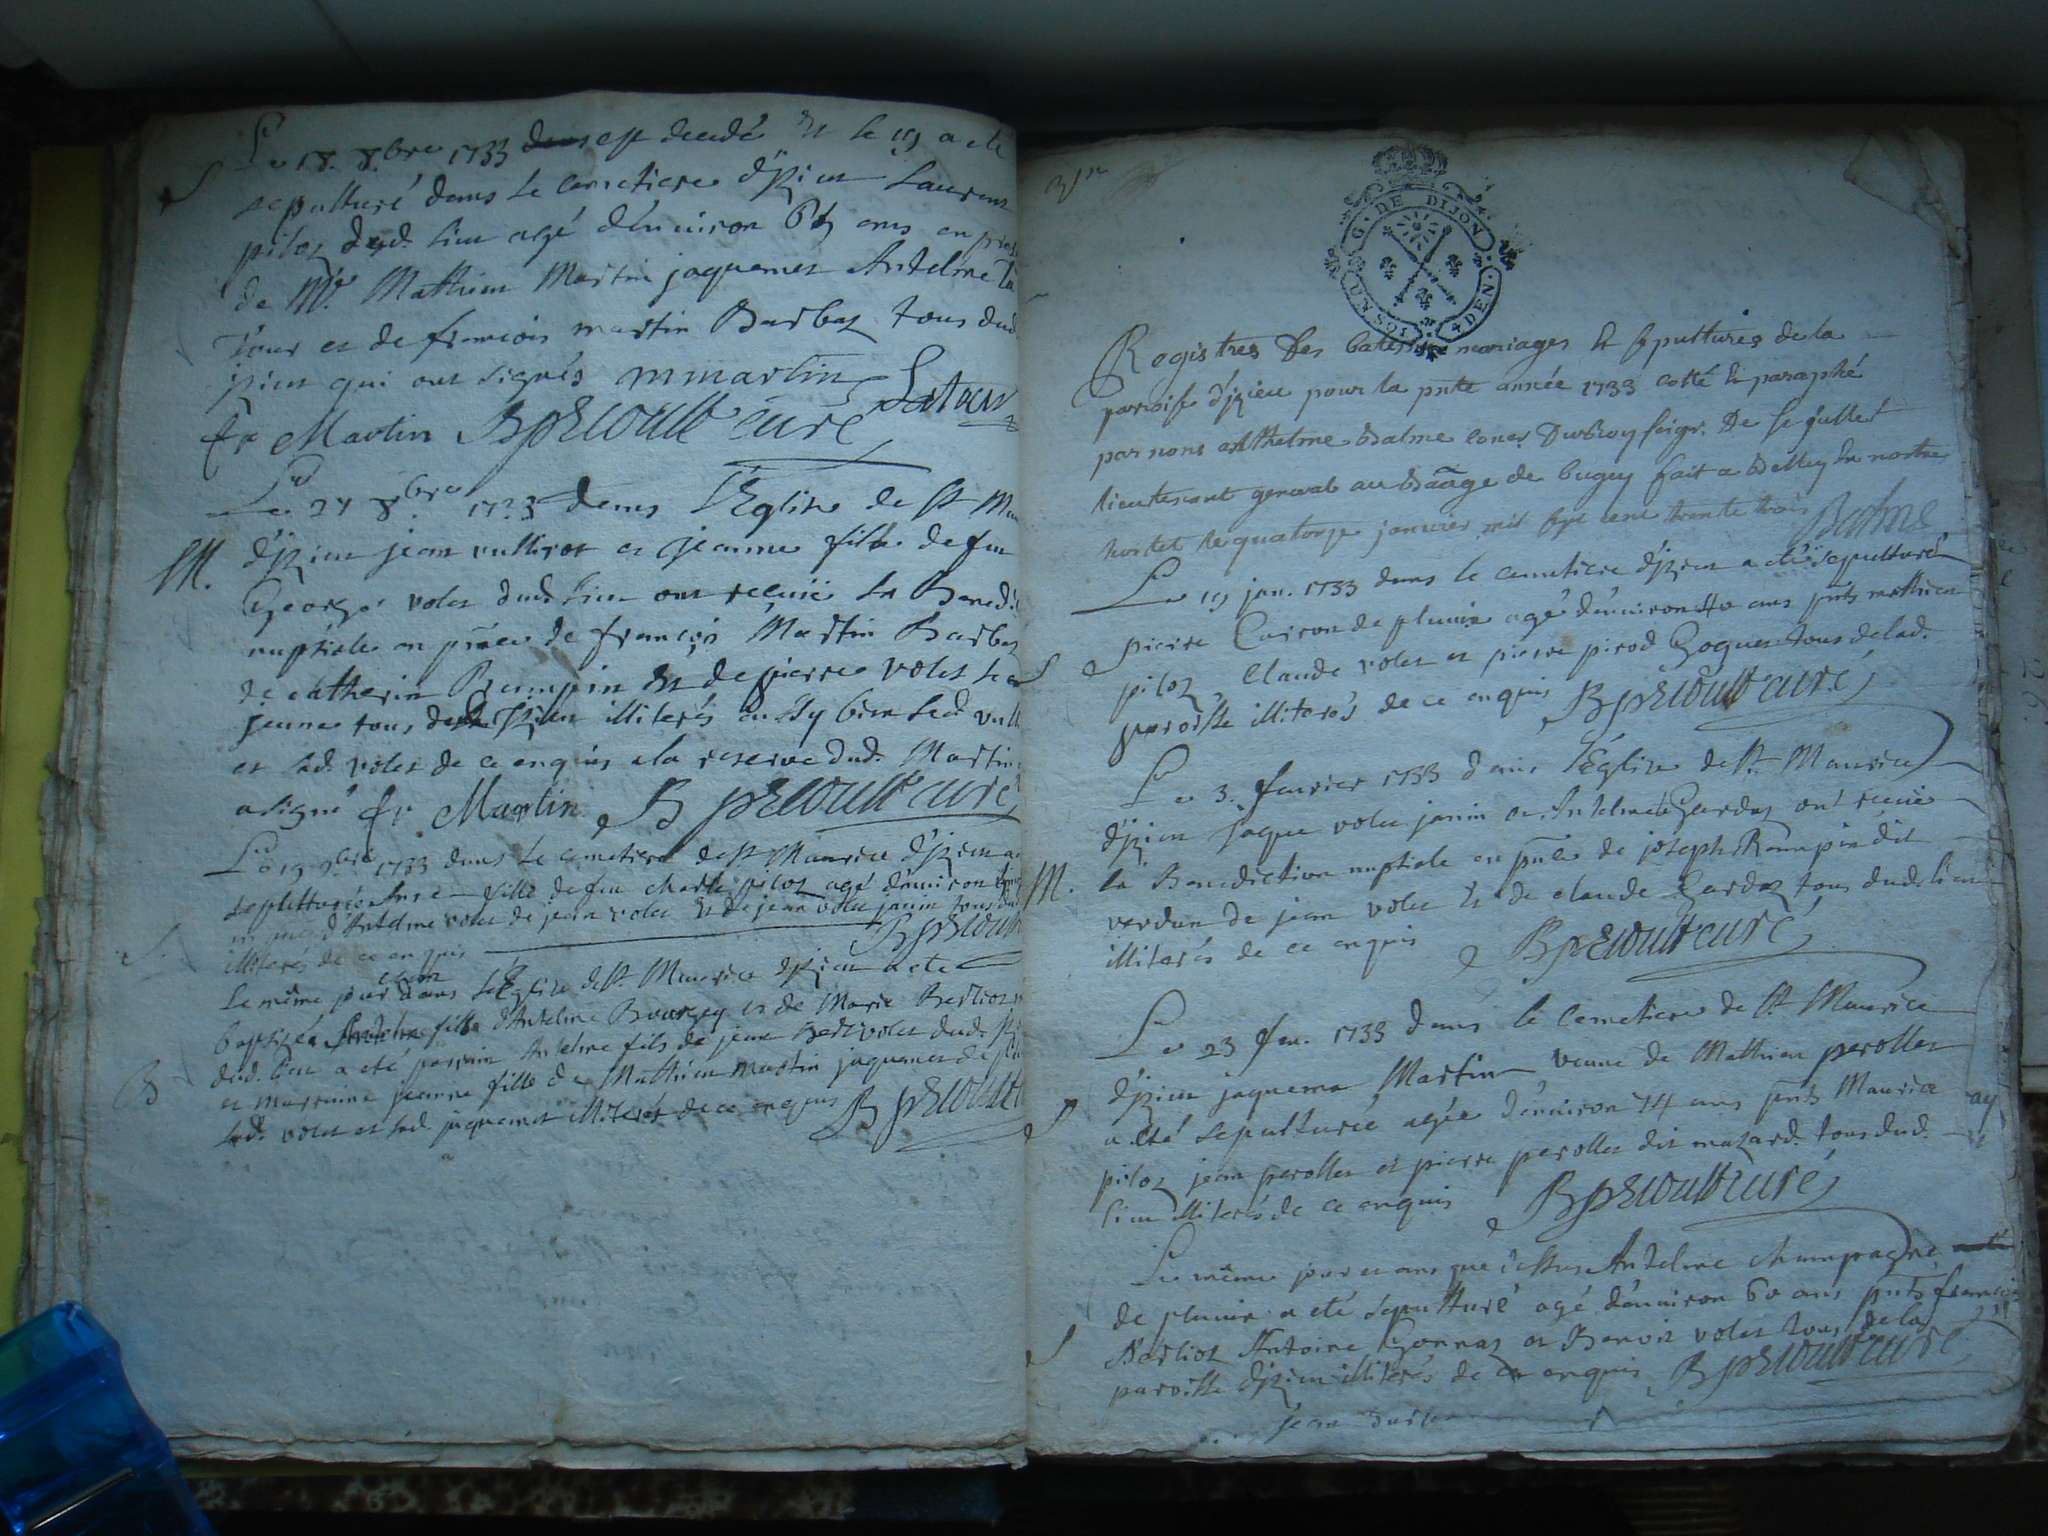 Le 18. 8.bre 1733 est decedé Et le 19 a ete
S
sepulturé dans le cemetiere d'Izieu Laurent
piloz dud. lieu agé d'environ ans en
de Mr. Mathieu Martin jaquemet Antelme La
Tour et de françois martin Barbaz tous dud
izieu qui ont signés mmartin Latour
fr Martin B prEioulb curé
Le 27 8.bre 1733 dans l'Eglise de St M
M. d'Izieu jean vulliot et jeanne fille de feu
George volet dud. lieu ont recuüe la Bened
nuptiale en de françois Martin Barbaz
de catherin Rampin Et de pierre volet le
jeune tous d'Izieu illiterés aussy bien led. vull
et lad. volet de ce enquis a la reserve dud. Martin
a signé fr Martin B prEioulb curé
Le 19 9.bre 1733 dans le cemetiere de St Maurice d'Izieu a
fille de feu Charle piloz agé d'environ
d'Antelme volet de jean volet Et de jean volet janin tous
illiterés de ce enquis B prEioulb
S.
Le même jour dans l'Eglise de St. Maurice d'Izieu a ete
baptisée fille d'Antelme Bourgey et de Marie Berlioz
dud. lieu a eté parrain Antelme fils de jean volet dud.
B
et marraine jeanne fille de Mathieu martin jaquemet
led. volet et lad. jaquemet illiterés de ce enquis B prEioulb
G. DE DIJON
4 DEN.
Registres Des batesme mariages Et sepultures de la
paroisse d'jzieu pour la pnte année 1733 cotté Et paraphé
par nous Anthelme Balme Duroy seigr. De Ste jullet
lieutenant general au Baage de bugey fait a Belley En nostre
hostel le quatorze janvier mil sept cent trente trois Balme
Le 19 jan. 1733 dans le cemetiere d'Izieu a eté sepulturé
pierre Cuiron de plunie agé d'environ 40 ans pnts mathieu
S
piloz, Claude volet et pierre pirod Goguet tous de lad.
paroisse illiterés de ce enquis B prEioulb curé
Le 3. fevrier 1733 dans l'Eglise de St. Maurice
d'Izieu jaque volet janin et Antelme Gardaz ont recuüe
M. la Benediction nuptiale en de joseph Rampin dit
verdun de jean volet Et de claude Gardaz tous dud. lieu
illiterés de ce enquis B prEioulb curé
Le 23 fev. 1733 dans le cemetiere de St. Maurice
d'Izieu jaquema Martin veuve de Mathieu perollet
S
a eté sepulturée agée d'environ 74 ans pnts Maurice
piloz jean perollet et pierre perollet dit mazard. tous dud.
lieu illiterés de ce enquis B prEioulb curé
Le même jour et ans que dessus Antelme champagne
de plunie a eté sepulturé agé d'environ 60 ans pnts françois
S
Berlioz Antoine Gonnaz et Benoit volet tous de la
paroisse d'Izieu illiterés de ce enquis B prEioulb curé